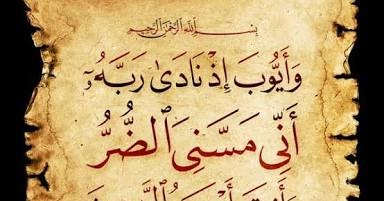 بِسْمِ اللَّهِ الرَّحْمَٰنِ الرَّحِيمِ
وَأَيُّوبَ إِذْ نَادَىٰ رَبَّهُۥٓ
أَنِّي مَسَّنِيَ ٱلضُّرُّ